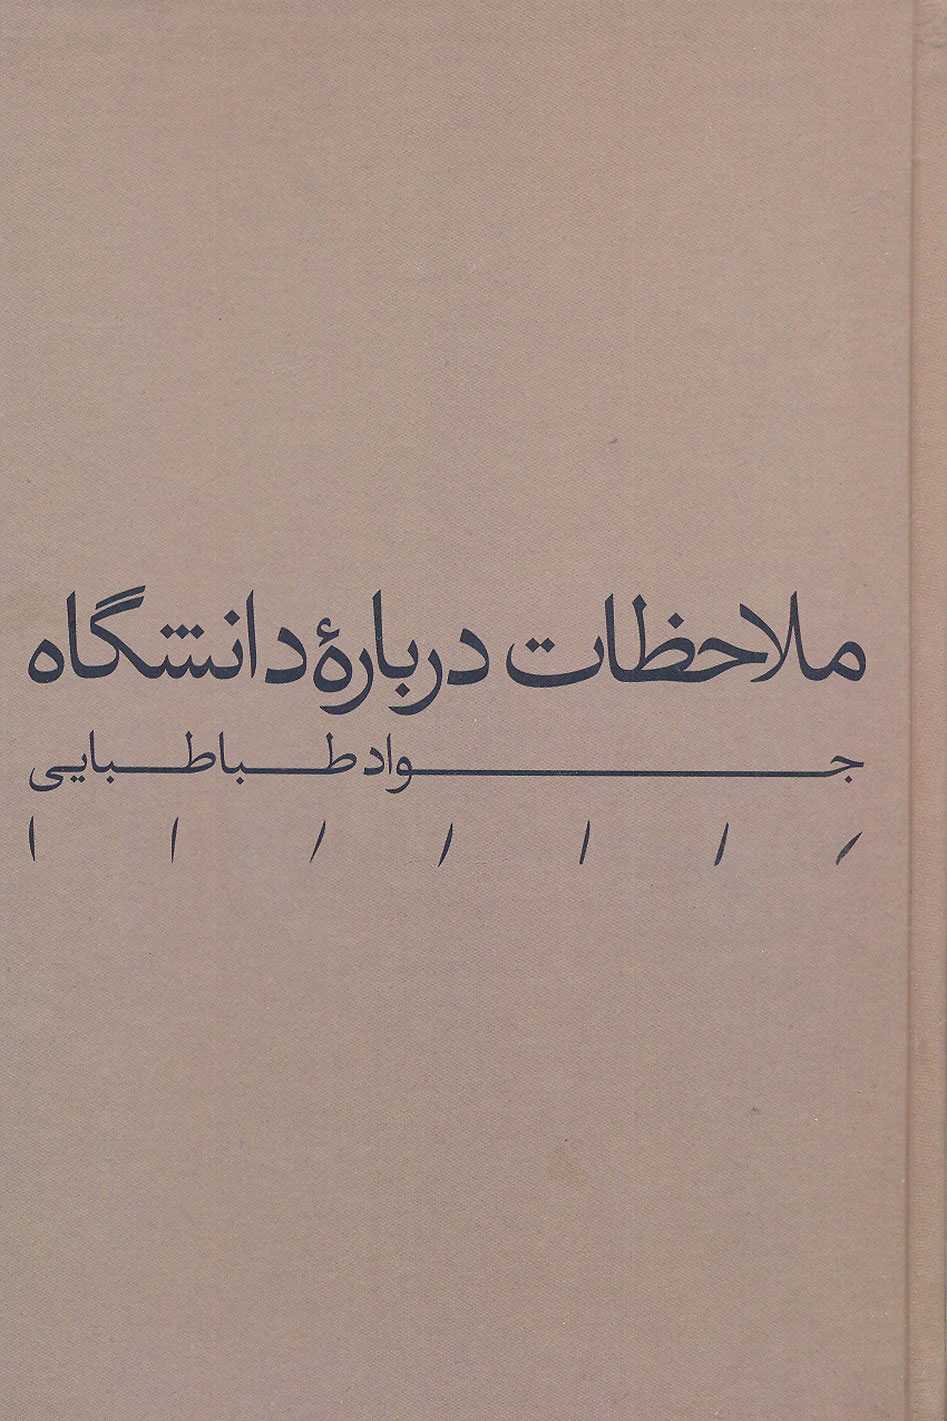 ملاحظات دربارهٔ دانشگاه
جواد طباطبایی